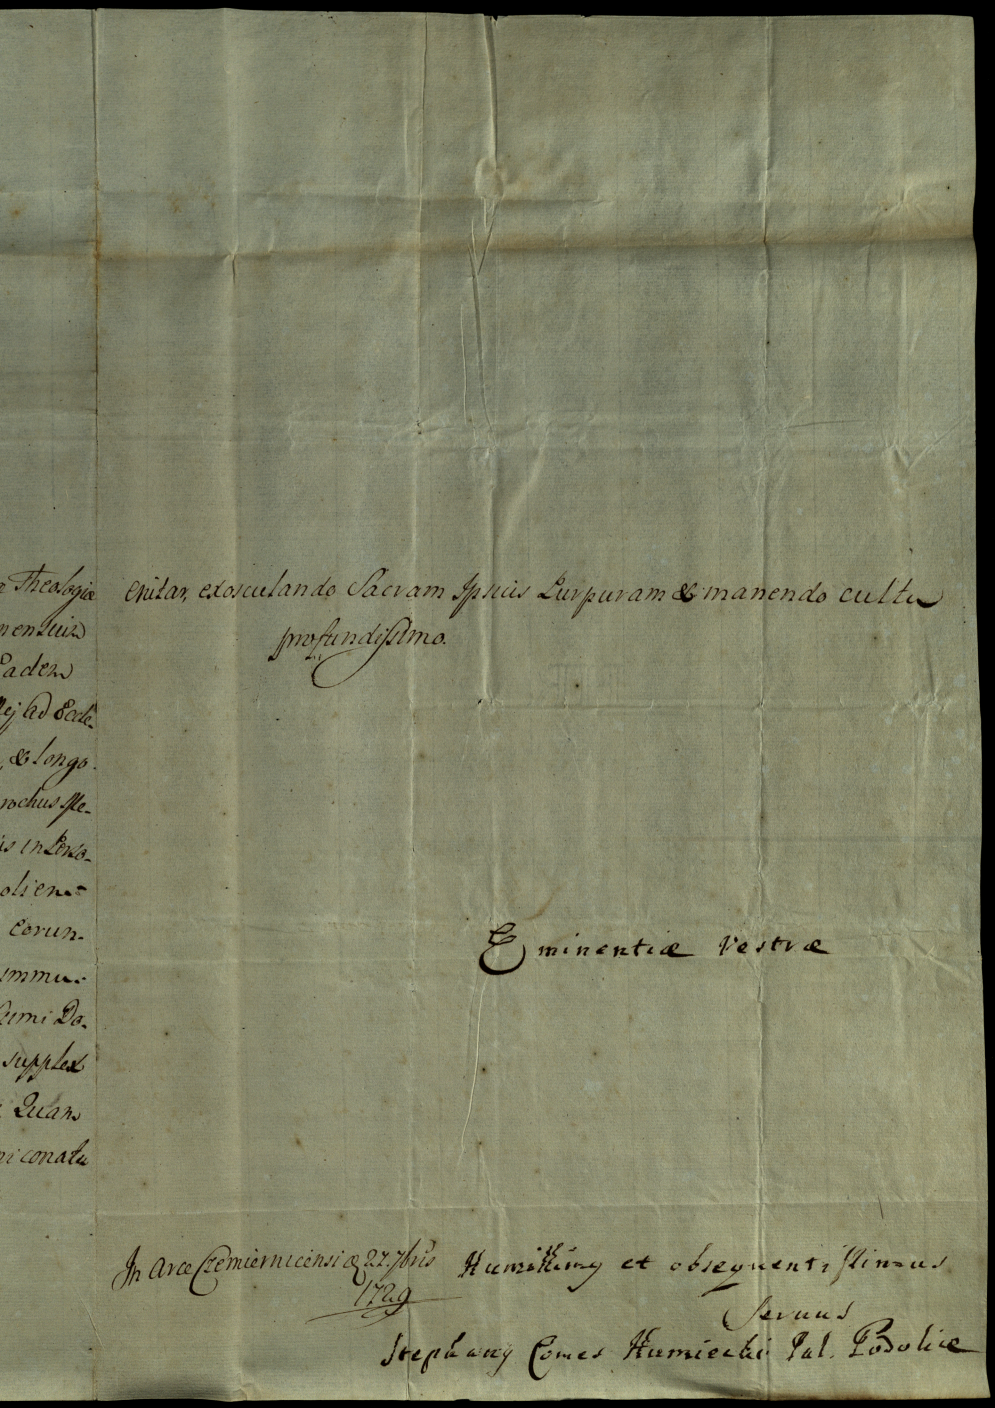 Theologiæ
Eadem
ad Eccle-
& longo
rochus
in Perso-
olien-
eorun-
Do-
supplex
Quam
conatu
enitar, exosculando Sacram Ipsius Purpuram & manendo cultu
profundissimo.
Eminentiæ Vestræ
In Arce Czemiernicensi 27. 7bris
1729
Humillimg et obsequentissimus
Servus
Stephang Comes Humiecki Pal. Podoliæ